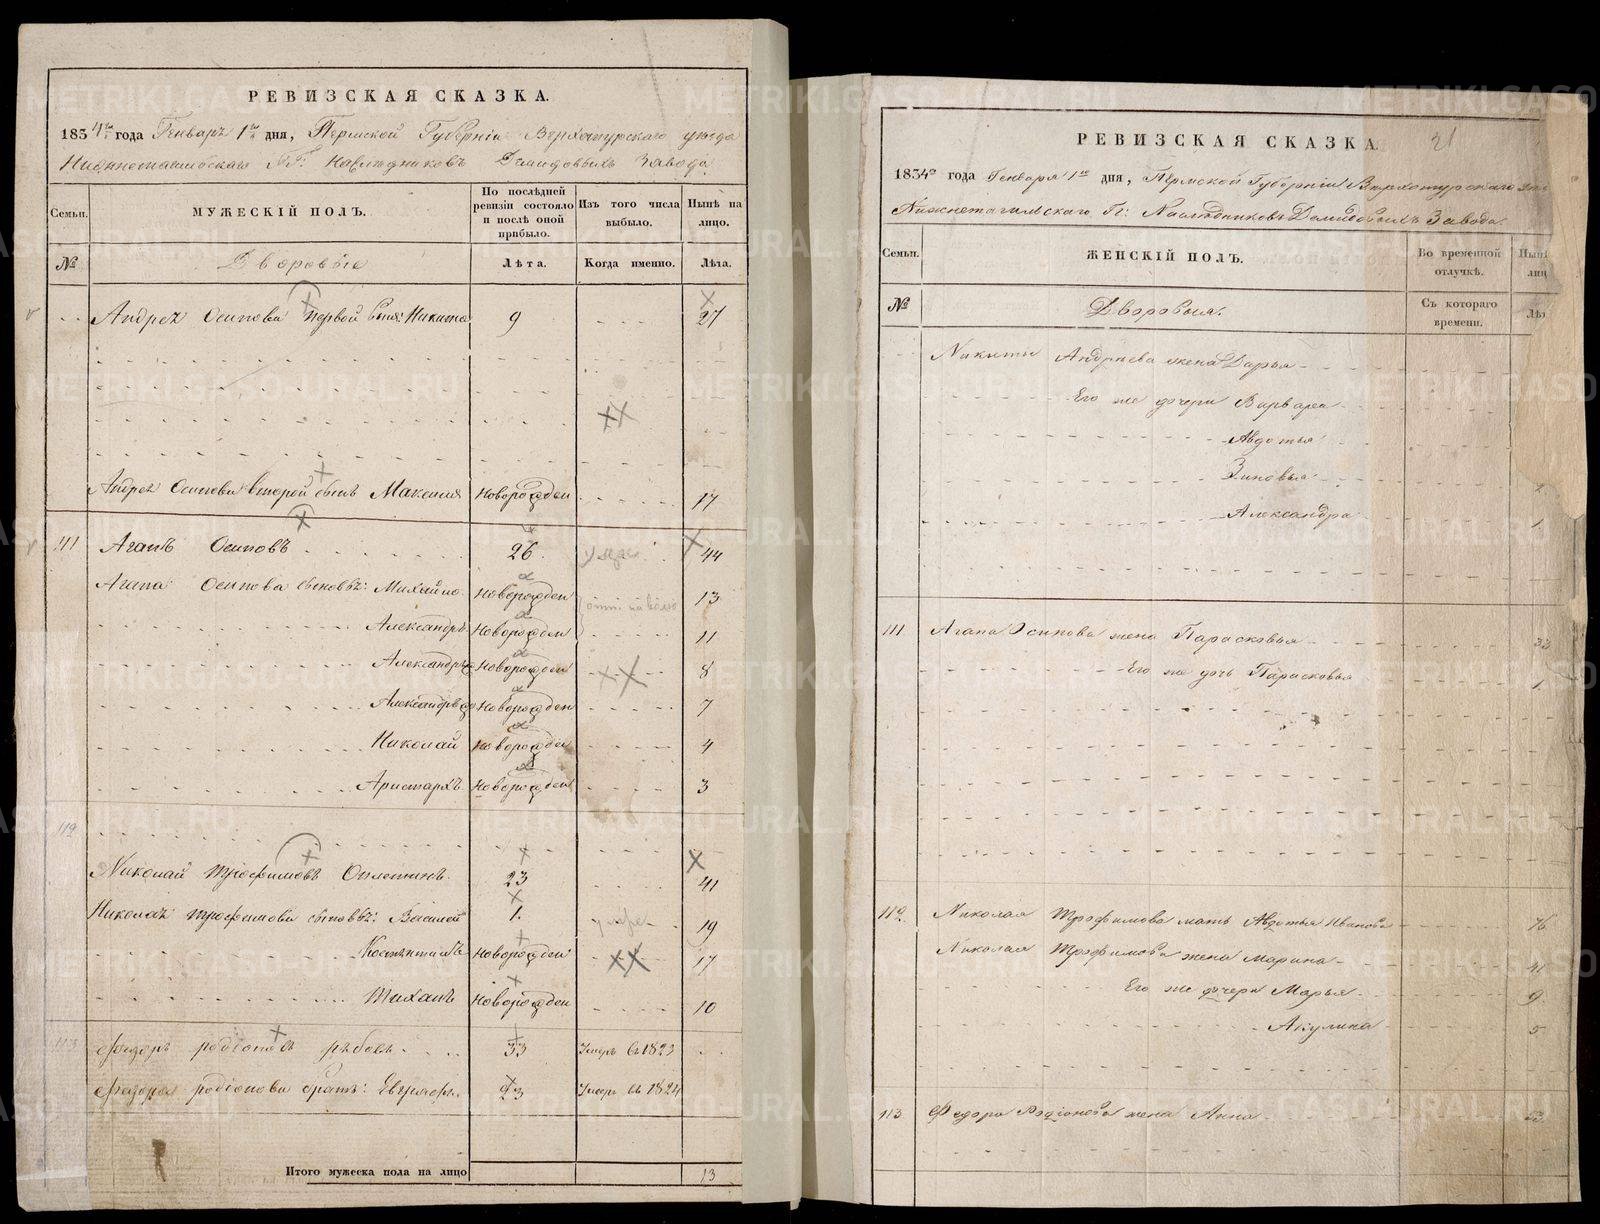 РЕВИЗСКАЯ СКАЗКА.
1834го года Генваря 1го дня, Пермской Губерніи Верхотурскаго уезда
Нижнетагильскаго ГГ: Наследниковъ Демидовыхъ Завода.
Семьи. МУЖЕСКІЙ ПОЛЪ. По последней ревизіи состояло и после оной прибыло. Изъ того числа выбыло. Ныне на лицо.
№ Дворовые Лѣта. Когда именно. Лѣта.
Андрея Осипова первой сынъ: Никита 9 27
Андрея Осипова второй сынъ Максимъ Новорожден 17
111 Агапъ Осиповъ 26. 44
Агапа Осипова сыновья: Михайло Новорожден 13
Александръ Новорожден 11
Александръ Новорожден 8
Александръ Новорожден 7
Николай Новорожден 4
Аристархъ Новорожден 3
112
Николай Трофимовъ 23 41
Николая Трофимова сыновья: Василей 1. 19
Костянтинъ Новорожден 17
Тихонъ Новорожден 10
113 Федоръ Родіоновъ Рябовъ 33 Умеръ въ 1823
Федора Родіонова братъ: Евгимъ 23 Умеръ въ 1824
Итого мужеска пола на лицо 13
РЕВИЗСКАЯ СКАЗКА. 21
1834го года Генваря 1го дня, Пермской Губерніи Верхотурскаго
Нижнетагильскаго Гг: Наследниковъ Демидовыхъ Завода.
Семьи. ЖЕНСКІЙ ПОЛЪ. Во временной отлучкѣ.
№ Дворовыя. Съ котораго времени.
Никиты Андреева жена Дарья
Его же дочери Варвара
Авдотья
Зиновья
Александра 1
111 Агапа Осипова жена Парасковья 32
Его же дочь Парасковья 1
112 Николая Трофимова мать Авдотья Иванова 76
Николая Трофимова жена Марина 41
Его же дочери Марья 9
Акулина 5
113 Федора Родіонова жена Анна
METRIKI.GASO-URAL.RU